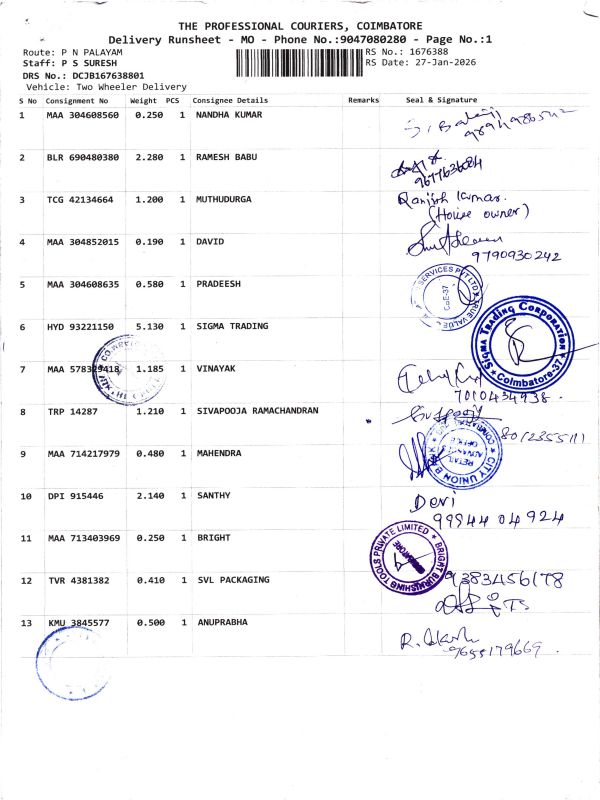 THE PROFESSIONAL COURIERS, COIMBATORE
Delivery Runsheet - MO - Phone No.:9047080280 - Page No.:1
Route: P N PALAYAM RS No.: 1676388
Staff: P S SURESH RS Date: 27-Jan-2026
DRS No.: DCJB167638801
Vehicle: Two Wheeler Delivery
S No Consignment No Weight PCS Consignee Details Remarks Seal & Signature
1 MAA 304608560 0.250 1 NANDHA KUMAR
2 BLR 690480380 2.280 1 RAMESH BABU
9677636084
3 TCG 42134664 1.200 1 MUTHUDURGA Ranjith kumar.
(House owner)
4 MAA 304852015 0.190 1 DAVID
9790930242
5 MAA 304608635 0.580 1 PRADEESH
SERVICES PVT LTD TRUE VALUE
CBE-37
6 HYD 93221150 5.130 1 SIGMA TRADING
Sigma Trading Corporation
Coimbatore-37
7 MAA 578329418 1.185 1 VINAYAK
7010434938.
8 TRP 14287 1.210 1 SIVAPOOJA RAMACHANDRAN
9 MAA 714217979 0.480 1 MAHENDRA
CITY UNION BANK
RETAIL
OFFICE
10 DPI 915446 2.140 1 SANTHY Devi
99944 04 924
11 MAA 713403969 0.250 1 BRIGHT
BRIGHT BURNISHING TOOLS PRIVATE LIMITED
12 TVR 4381382 0.410 1 SVL PACKAGING 9383456178
13 KMU 3845577 0.500 1 ANUPRABHA
9655179669.